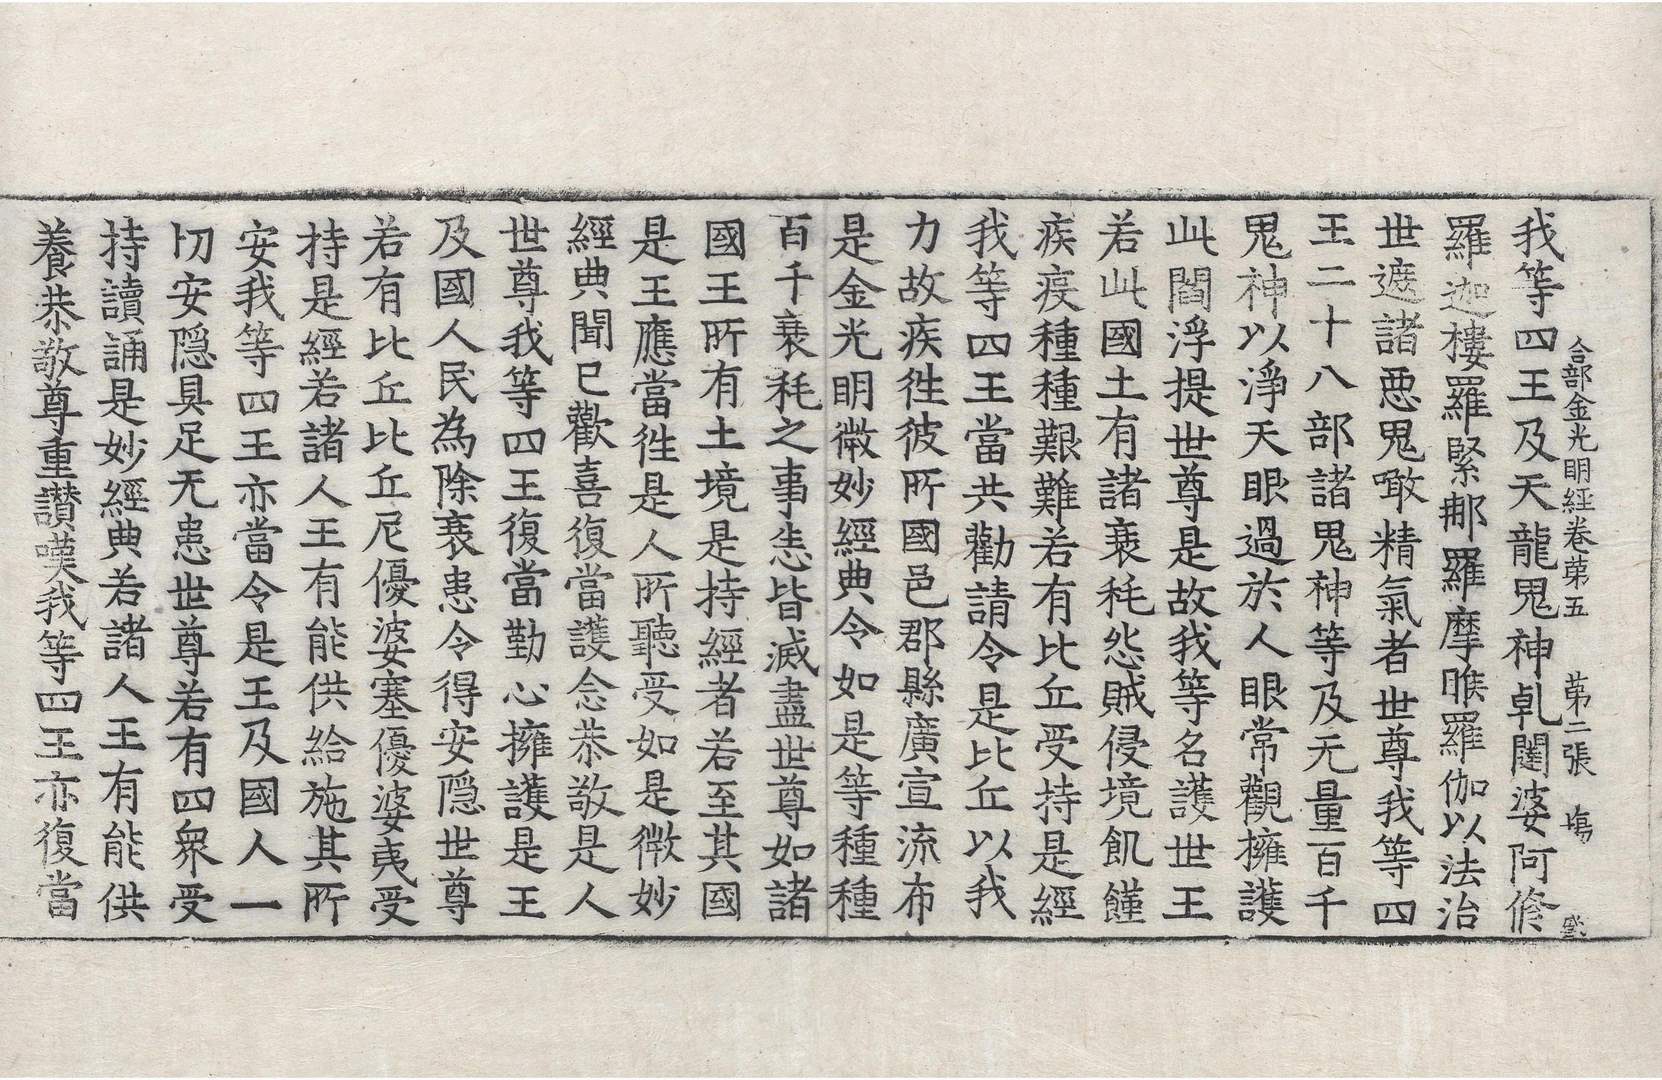 合部金光明經卷苐五　苐二張　塲
我等四王及天龍鬼神乹闥婆阿脩
羅迦樓羅緊那羅摩睺羅伽以法治
世遮諸惡鬼噉精氣者世尊我等四
王二十八部諸鬼神等及无量百千
鬼神以淨天眼過於人眼常觀擁護
此閻浮提世尊是故我等名護世王
若此國土有諸衰耗怨賊侵境飢饉
疾疫種種艱難若有比丘受持是經
我等四王當共勸請令是比丘以我
力故疾徃彼所國邑郡縣廣宣流布
是金光明微妙經典令如是等種種
百千衰耗之事悉皆滅盡世尊如諸
國王所有土境是持經者若至其國
是王應當徃是人所聽受如是微妙
經典聞已歡喜復當護念恭敬是人
世尊我等四王復當勤心擁護是王
及國人民為除衰患令得安隱世尊
若有比丘比丘尼優婆塞優婆夷受
持是經若諸人王有能供給施其所
安我等四王亦當令是王及國人一
切安隱具足无患世尊若有四衆受
持讀誦是妙經典若諸人王有能供
養恭敬尊重讃嘆我等四王亦復當